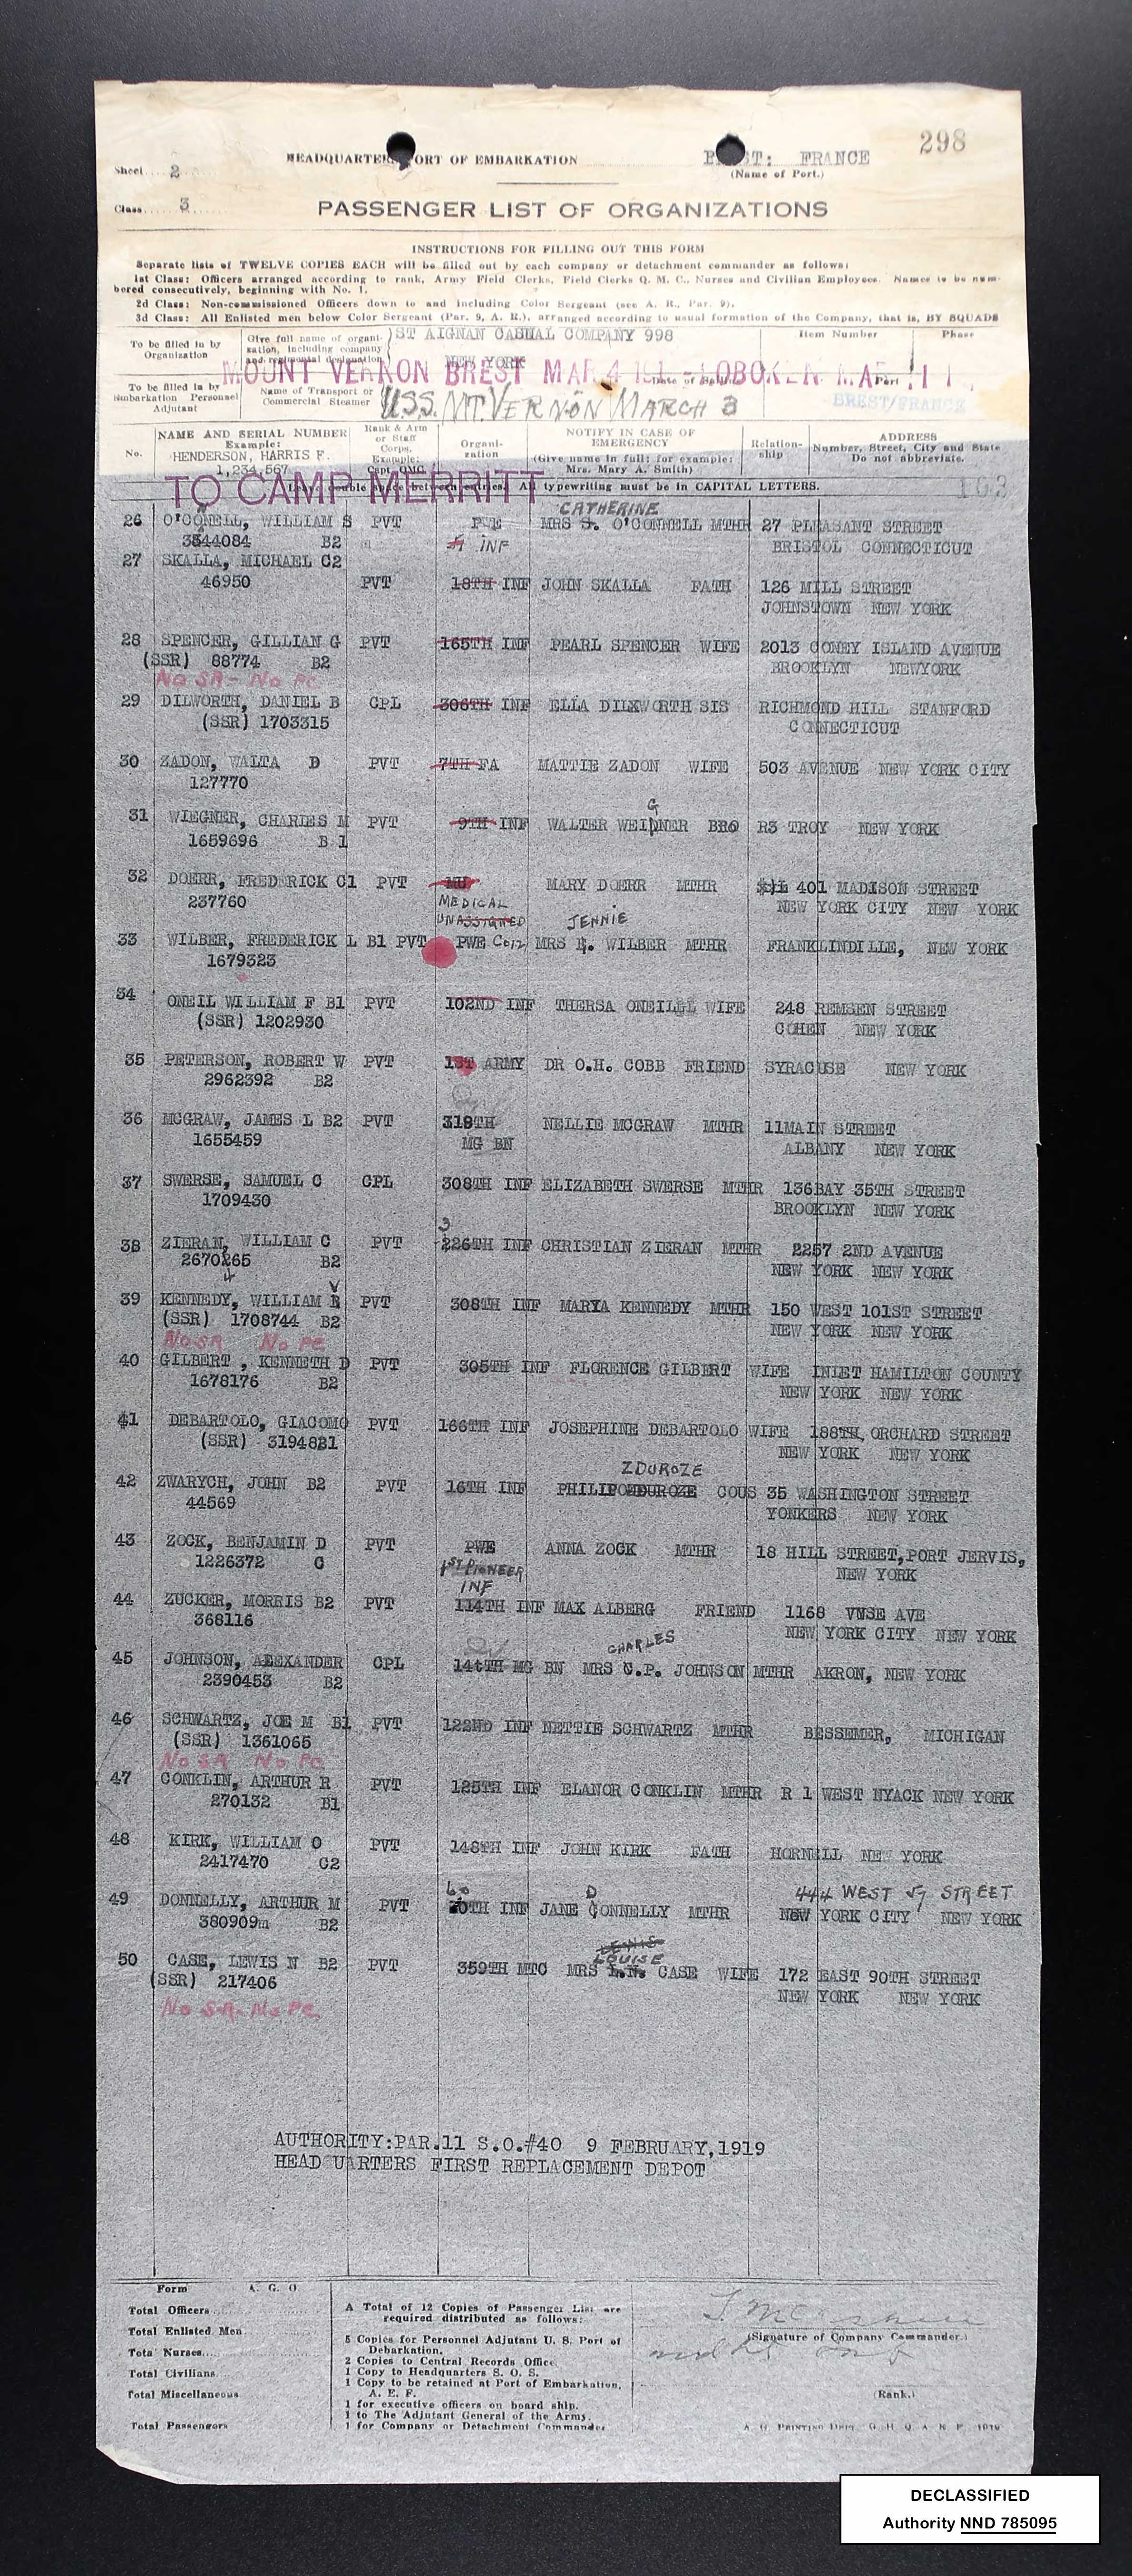 298
HEADQUARTERS PORT OF EMBARKATION
BREST: FRANCE
(Name of Port.)
Sheet 2
Class 3
PASSENGER LIST OF ORGANIZATIONS
INSTRUCTIONS FOR FILLING OUT THIS FORM
Separate lists of TWELVE COPIES EACH will be filled out by each company or detachment commander as follows:
1st Class: Officers arranged according to rank, Army Field Clerks, Field Clerks Q. M. C., Nurses and Civilian Employees. Names to be num-
bered consecutively, beginning with No. 1.
2d Class: Non-commissioned Officers down to and including Color Sergeant (see A. R., Par. 9).
3d Class: All Enlisted men below Color Sergeant (Par. 9, A. R.), arranged according to usual formation of the Company, that is, BY SQUADS
To be filled in by Organization
Give full name of organi-zation, including company and regimental designation
ST AIGNAN CASUAL COMPANY 998
NEW YORK
Item Number
Phase
MOUNT VERNON BREST MAR 4 191 HOBOKEN MAR 11
To be filled in by Embarkation Personnel Adjutant
Name of Transport or Commercial Steamer
USS. MT. VERNON MARCH 3
Date of Sailing
Port
BREST/FRANCE
No.
NAME AND SERIAL NUMBER
Example:
HENDERSON, HARRIS F.
1,234,567
Rank & Arm or Staff Corps, Example: Capt. QMC.
Organi-zation
NOTIFY IN CASE OF EMERGENCY
(Give name in full; for example: Mrs. Mary A. Smith)
Relation-ship
ADDRESS
Number, Street, City and State
Do not abbreviate.
TO CAMP MERRITT
Leave double space between entries. All typewriting must be in CAPITAL LETTERS.
103
CATHERINE
26 O'CONELL, WILLIAM S PVT PWE MRS S. O'CONNELL MTHR 27 PLEASANT STREET
3544084 B2 INF BRISTOL CONNECTICUT
27 SKALLA, MICHAEL C2
46950 PVT 18TH INF JOHN SKALLA FATH 126 MILL STREET
JOHNSTOWN NEW YORK
28 SPENCER, GILLIAN G PVT 165TH INF PEARL SPENCER WIFE 2013 CONEY ISLAND AVENUE
(SSR) 88774 B2 BROOKLYN NEWYORK
No SR - No PC
29 DILWORTH, DANIEL B CPL 306TH INF ELLA DILXWORTH SIS RICHMOND HILL STANFORD
(SSR) 1703315 CONNECTICUT
30 ZADON, WALTA D PVT 7TH FA MATTIE ZADON WIFE 503 AVENUE NEW YORK CITY
127770
G
31 WIEGNER, CHARLES M PVT 9TH INF WALTER WEIDNER BRO R3 TROY NEW YORK
1659696 B 1
32 DOERR, FREDERICK C1 PVT MARY DOERR MTHR 401 MADISON STREET
237760 MEDICAL NEW YORK CITY NEW YORK
UNASSIGNED JENNIE
33 WILBER, FREDERICK L B1 PVT PWE Co 12 MRS WILBER MTHR FRANKLINDILLE, NEW YORK
1679323
34 ONEIL WILLIAM F B1 PVT 102ND INF THERSA ONEILLL WIFE 248 REMSEN STREET
(SSR) 1202930 COHEN NEW YORK
35 PETERSON, ROBERT W PVT 1ST ARMY DR O.H. COBB FRIEND SYRACUSE NEW YORK
2962392 B2
36 MCGRAW, JAMES L B2 PVT 319TH NELLIE MCGRAW MTHR 11MAIN STREET
1655459 MG BN ALBANY NEW YORK
37 SWERSE, SAMUEL C CPL 308TH INF ELIZABETH SWERSE MTHR 136BAY 35TH STREET
1709430 BROOKLYN NEW YORK
3
38 ZIERAN, WILLIAM C PVT 226TH INF CHRISTIAN ZIERAN MTHR 2257 2ND AVENUE
2670265 B2 NEW YORK NEW YORK
4 V
39 KENNEDY, WILLIAM R PVT 308TH INF MARYA KENNEDY MTHR 150 WEST 101ST STREET
(SSR) 1708744 B2 NEW YORK NEW YORK
No SR No PC
40 GILBERT , KENNETH D PVT 305TH INF FLORENCE GILBERT WIFE INLET HAMILTON COUNTY
1678176 B2 NEW YORK NEW YORK
41 DEBARTOLO, GIACOMO PVT 166TH INF JOSEPHINE DEBARTOLO WIFE 188TH, ORCHARD STREET
(SSR) 3194881 NEW YORK NEW YORK
ZDUROZE
42 ZWARYCH, JOHN B2 PVT 16TH INF PHILIP COUS 35 WASHINGTON STREET
44569 YONKERS NEW YORK
43 ZOCK, BENJAMIN D PVT PWE ANNA ZOCK MTHR 18 HILL STREET,PORT JERVIS,
1226372 C 1ST PIONEER NEW YORK
INF
44 ZUCKER, MORRIS B2 PVT 114TH INF MAX ALBERG FRIEND 1168 VWSE AVE
368116 NEW YORK CITY NEW YORK
CHARLES
45 JOHNSON, ALEXANDER CPL 146TH MG BN MRS C.P. JOHNSON MTHR AKRON, NEW YORK
2390453 B2
46 SCHWARTZ, JOE M B1 PVT 122ND INF NETTIE SCHWARTZ MTHR BESSEMER, MICHIGAN
(SSR) 1361065
No SR No PC
47 CONKLIN, ARTHUR R PVT 125TH INF ELANOR CONKLIN MTHR R 1 WEST NYACK NEW YORK
270132 B1
48 KIRK, WILLIAM O PVT 148TH INF JOHN KIRK FATH HORNELL NEW YORK
2417470 C2
60 D 444 WEST 57 STREET
49 DONNELLY, ARTHUR M PVT INF JANE CONNELLY MTHR NEW YORK CITY NEW YORK
380909m B2
LOUISE
50 CASE, LEWIS N B2 PVT 359TH MTC MRS L.N. CASE WIFE 172 EAST 90TH STREET
(SSR) 217406 NEW YORK NEW YORK
No SR - No PC
AUTHORITY:PAR.11 S.O.#40 9 FEBRUARY,1919
HEADQUARTERS FIRST REPLACEMENT DEPOT
Form A. G. O
Total Officers
Total Enlisted Men
Total Nurses
Total Civilians
Total Miscellaneous
Total Passengers
A Total of 12 Copies of Passenger List are required distributed as follows:
5 Copies for Personnel Adjutant U. S. Port of Debarkation.
2 Copies to Central Records Office.
1 Copy to Headquarters S. O. S.
1 Copy to be retained at Port of Embarkation, A. E. F.
1 for executive officers on board ship.
1 to The Adjutant General of the Army.
1 for Company or Detachment Commander
(Signature of Company Commander.)
(Rank.)
A. G. PRINTING DEPT. G. H. Q. A. E. F. 1919
DECLASSIFIED
Authority NND 785095